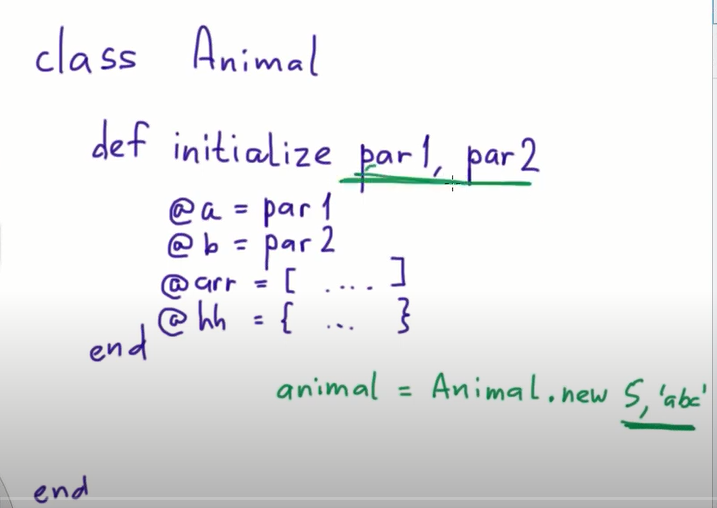 class Animal
def initialize par1, par2
@a = par1
@b = par2
@arr = [ .... ]
@hh = { ... }
end
animal = Animal.new 5, 'abc'
end